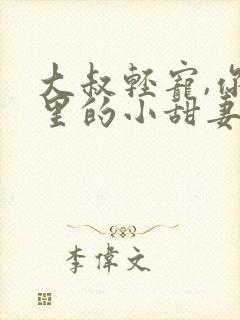 大叔輕寵,你
里的小甜妻
李偉文